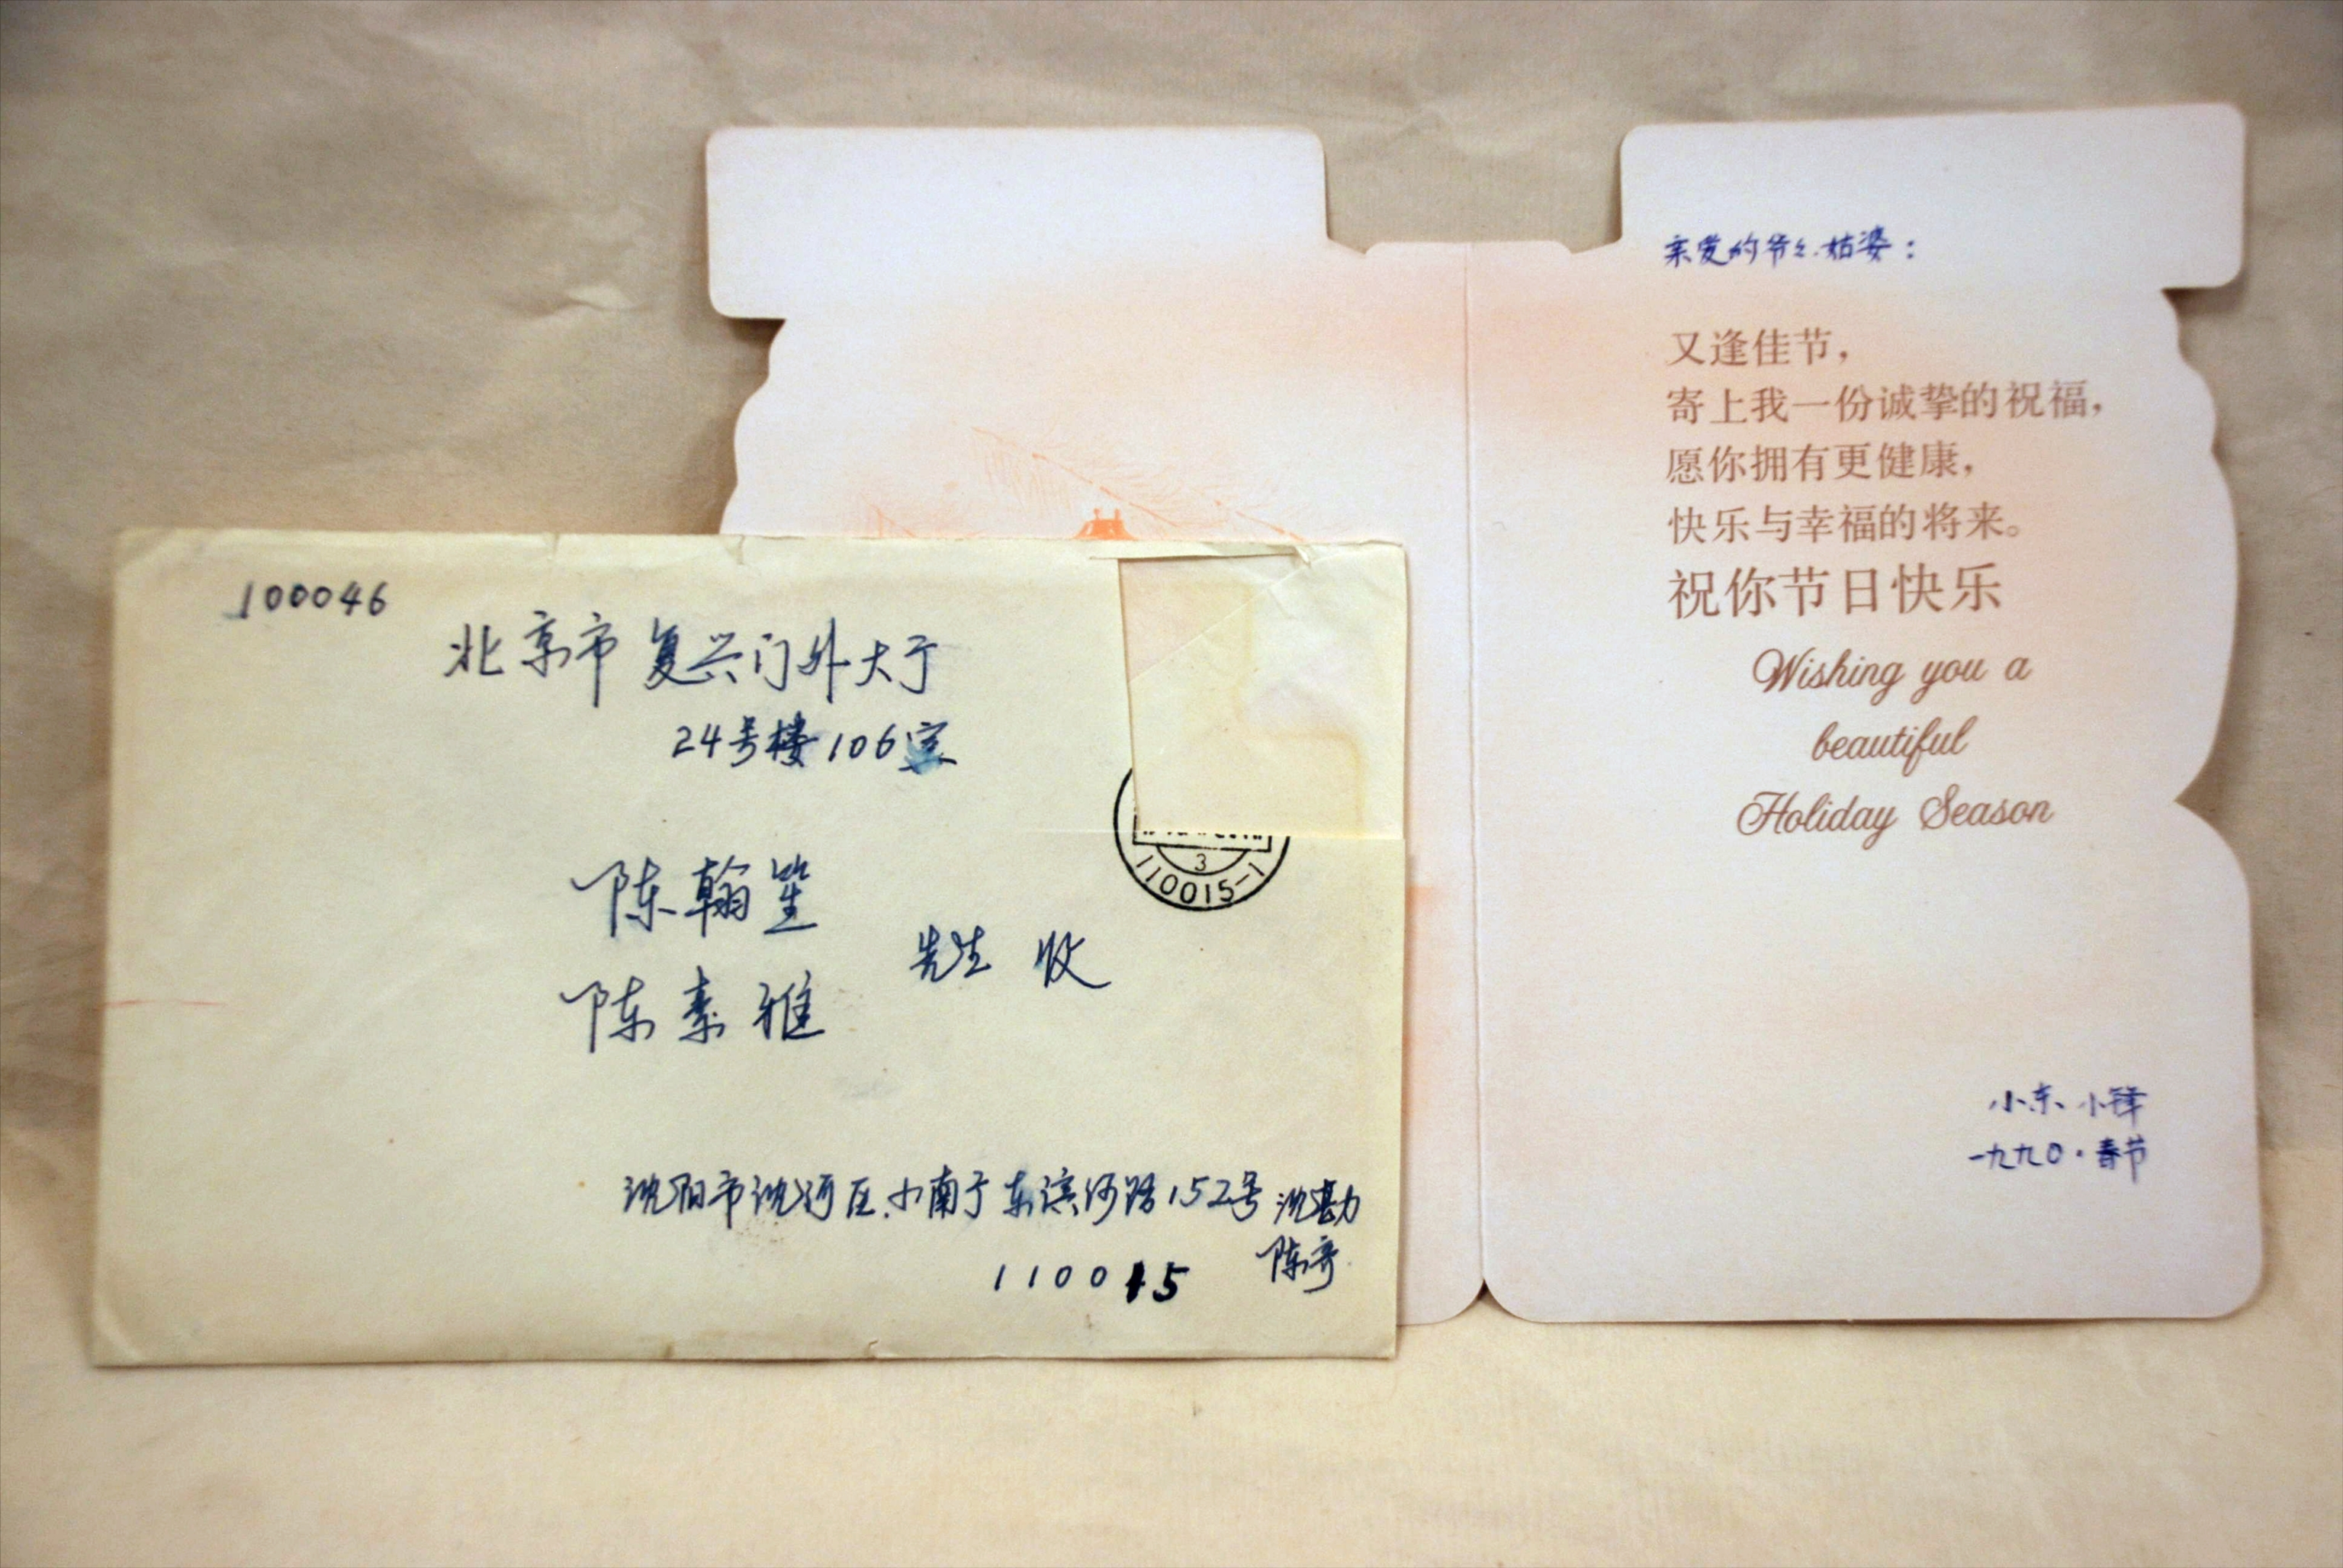 100046
北京市复兴门外大亍
24号楼106室
陈翰笙
陈素雅
先生 收
3
110015-1
沈阳市沈河区.小南亍东滨河路152号 沈勘
陈奇
110015
亲爱的爷々.姑婆：
又逢佳节，
寄上我一份诚挚的祝福，
愿你拥有更健康，
快乐与幸福的将来。
祝你节日快乐
Wishing you a
beautiful
Holiday Season
小东 小锋
一九九〇·春节